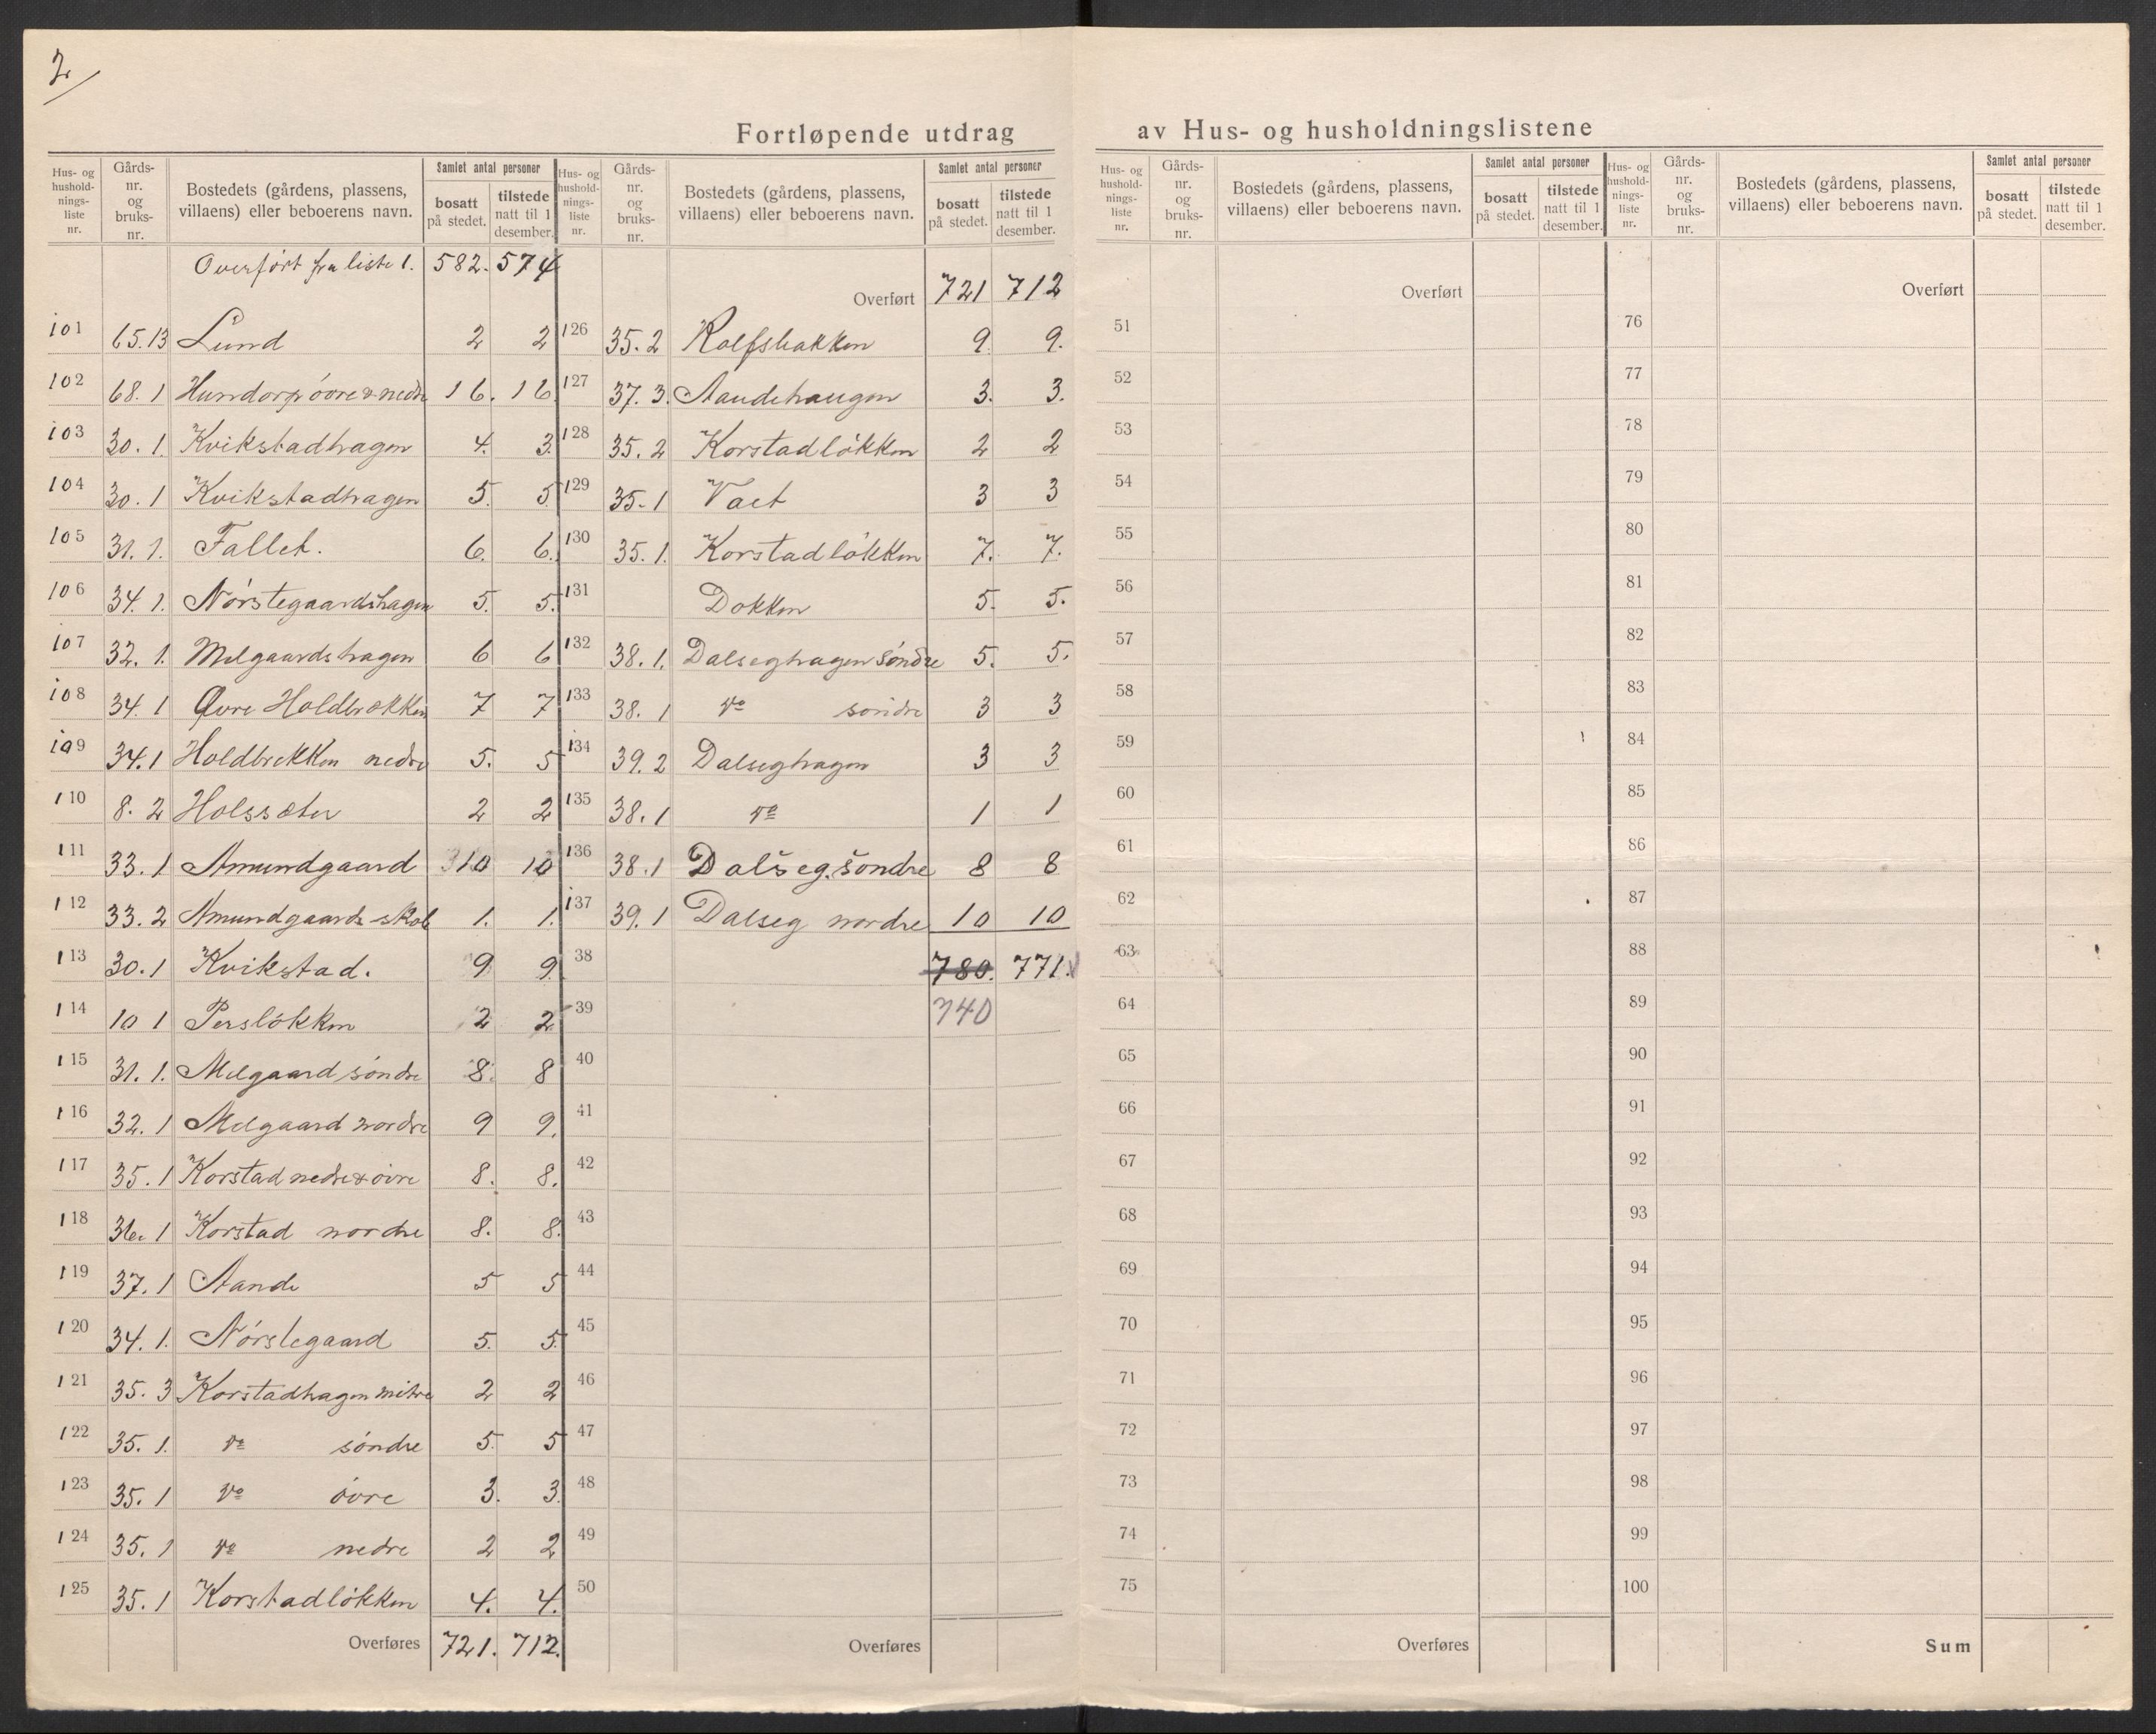 2/
Fortløpende utdrag av Hus- og husholdningslistene
Hus- og hushold- nings- liste nr. Gårds- nr. og bruks- nr. Bostedets (gårdens, plassens, villaens) eller beboerens navn. Samlet antal personer bosatt på stedet. tilstede natt til 1 desember.
Overført fra liste 1. 582. 574
101 65.13 Lund 2 2
102 68.1 Hundorp óvre & nedre 16. 16
103 30.1. Kvikstadhagen 4. 3.
104 30.1 Kvikstadhagen 5. 5
105 31.1. Fallet. 6. 6.
106 34.1. Nórstegaardshagen 5. 5.
107 32.1. Melgaardshagen 6 6
108 34.1 Øvre Holdbrekken 7 7
109 34.1 Holdbrekken nedre 5. 5
110 8.2 Holssæter 2 2
111 33.1 Amundgaard 10 10
112 33.2 Amundgaards skole 1. 1.
113 30.1 Kvikstad. 9 9
114 10 1 Perslókken 2 2
115 31.1. Melgaard söndre 8. 8
116 32.1 Melgaard nordre 9 9.
117 35.1 Korstad nedre & óvre 8. 8.
118 36.1 Korstad nordre 8. 8.
119 37.1 Aande 5 5
120 34.1. Nórstegaard 5. 5.
121 35.3 Korstadhagen mitre 2 2
122 35.1. do söndre 5. 5
123 35.1 do óvre 3. 3.
124 35.1 do nedre 2 2
125 35.1 Korstadlókken 4. 4.
Overføres 721. 712.
Hus- og hushold- nings- liste nr. Gårds- nr. og bruks- nr. Bostedets (gårdens, plassens, villaens) eller beboerens navn. Samlet antal personer bosatt på stedet. tilstede natt til 1 desember.
Overført 721 712
126 35.2 Rolfsbakken 9. 9.
127 37.3. Aandehaugen 3. 3.
128 35.2 Korstadlókken 2 2
129 35.1 Vaet 3 3
130 35.1. Korstadlókken 7. 7.
131 Dokken 5. 5.
132 38.1. Dalseghagen söndre 5. 5.
133 38.1 do söndre 3 3
134 39.2 Dalseghagen 3 3
135 38.1 do 1 1
136 38.1 Dalseg. söndre 8 8
137 39.1 Dalseg nordre 10 10
38 780. 771.
39 740
40
41
42
43
44
45
46
47
48
49
50
Overføres
Hus- og hushold- nings- liste nr. Gårds- nr. og bruks- nr. Bostedets (gårdens, plassens, villaens) eller beboerens navn. Samlet antal personer bosatt på stedet. tilstede natt til 1 desember.
Overført
51
52
53
54
55
56
57
58
59
60
61
62
63
64
65
66
67
68
69
70
71
72
73
74
75
Overføres
Hus- og hushold- nings- liste nr. Gårds- nr. og bruks- nr. Bostedets (gårdens, plassens, villaens) eller beboerens navn. Samlet antal personer bosatt på stedet. tilstede natt til 1 desember.
Overført
76
77
78
79
80
81
82
83
84
85
86
87
88
89
90
91
92
93
94
95
96
97
98
99
100
Sum